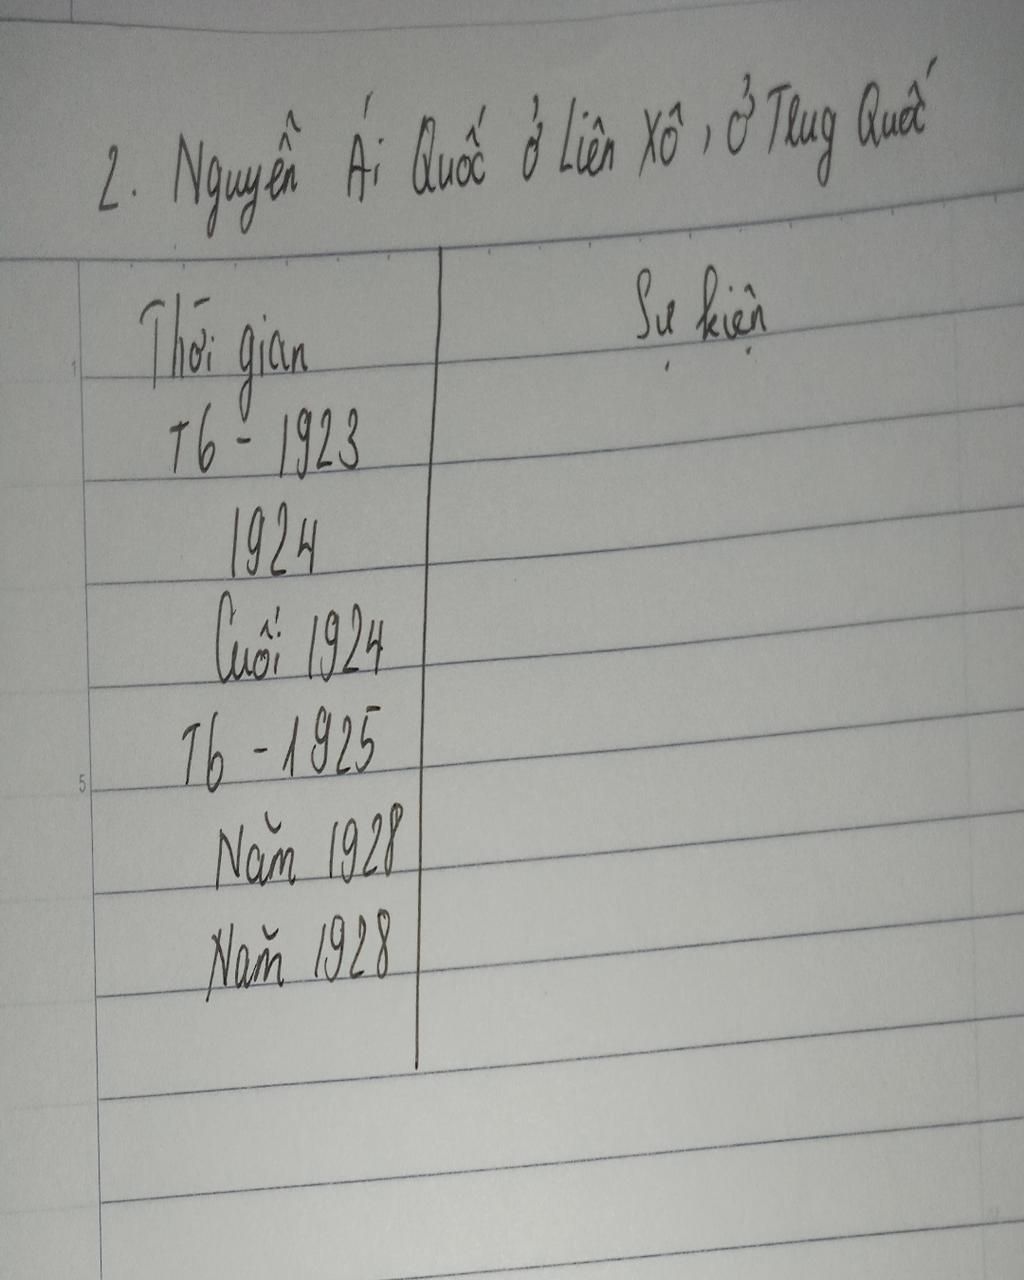 2. Nguyễn Ái Quốc ở Liên Xô, ở Trung Quốc
Thời gian Sự kiện
1
T6 - 1923
1924
Cuối 1924
T6 - 1925
5
Năm 1928
Năm 1928